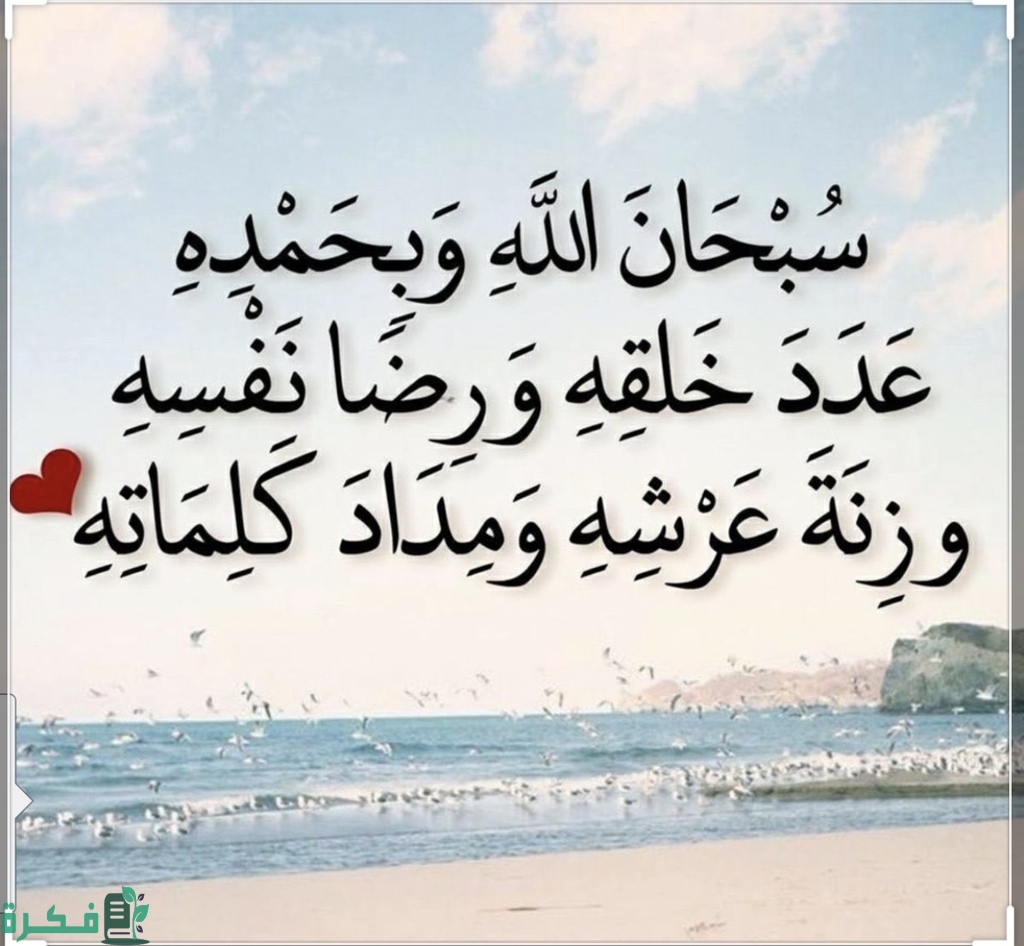 سُبْحَانَ اللَّهِ وَبِحَمْدِهِ
عَدَدَ خَلقِهِ وَرِضًا نَفْسِهِ
وزِنَةَ عَرْشِهِ وَمِدَادَ كَلِمَاتِهِ
فكرة